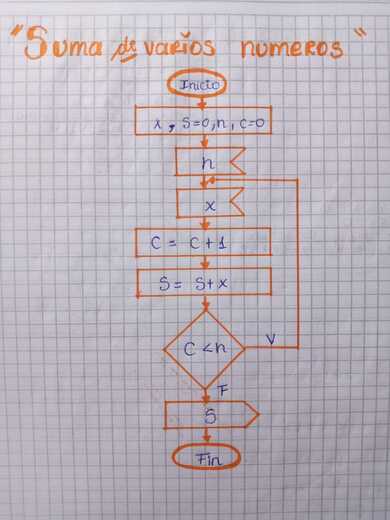 "Suma de varios numeros"
Inicio
x, S=0, n, C=0
n
x
C = C+1
S = S+x
C<n
V
F
S
Fin